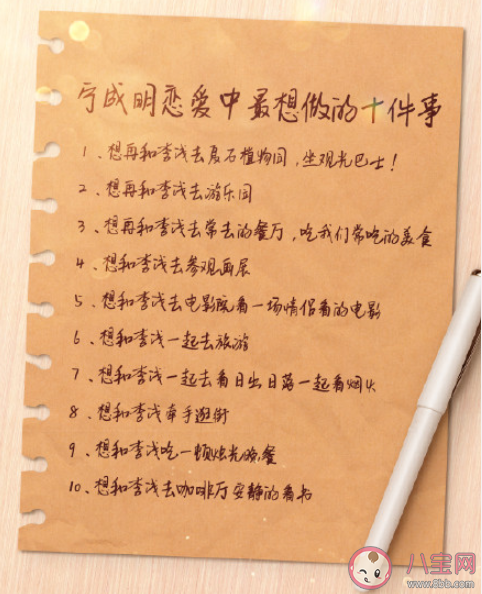 宁成明恋爱中最想做的十件事
1、想再和李浅去夏石植物园,坐观光巴士!
2、想再和李浅去游乐园
3、想再和李浅去常去的餐厅,吃我们常吃的美食
4、想和李浅去参观画展
5、想和李浅去电影院看一场情侣看的电影
6、想和李浅一起去旅游
7、想和李浅一起去看日出日落一起看烟火
8、想和李浅牵手逛街
9、想和李浅吃一顿烛光晚餐
10、想和李浅去咖啡厅安静的看书
八宝网
www.8bb.com